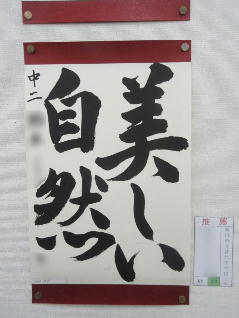 美しい
自然
中二
推薦